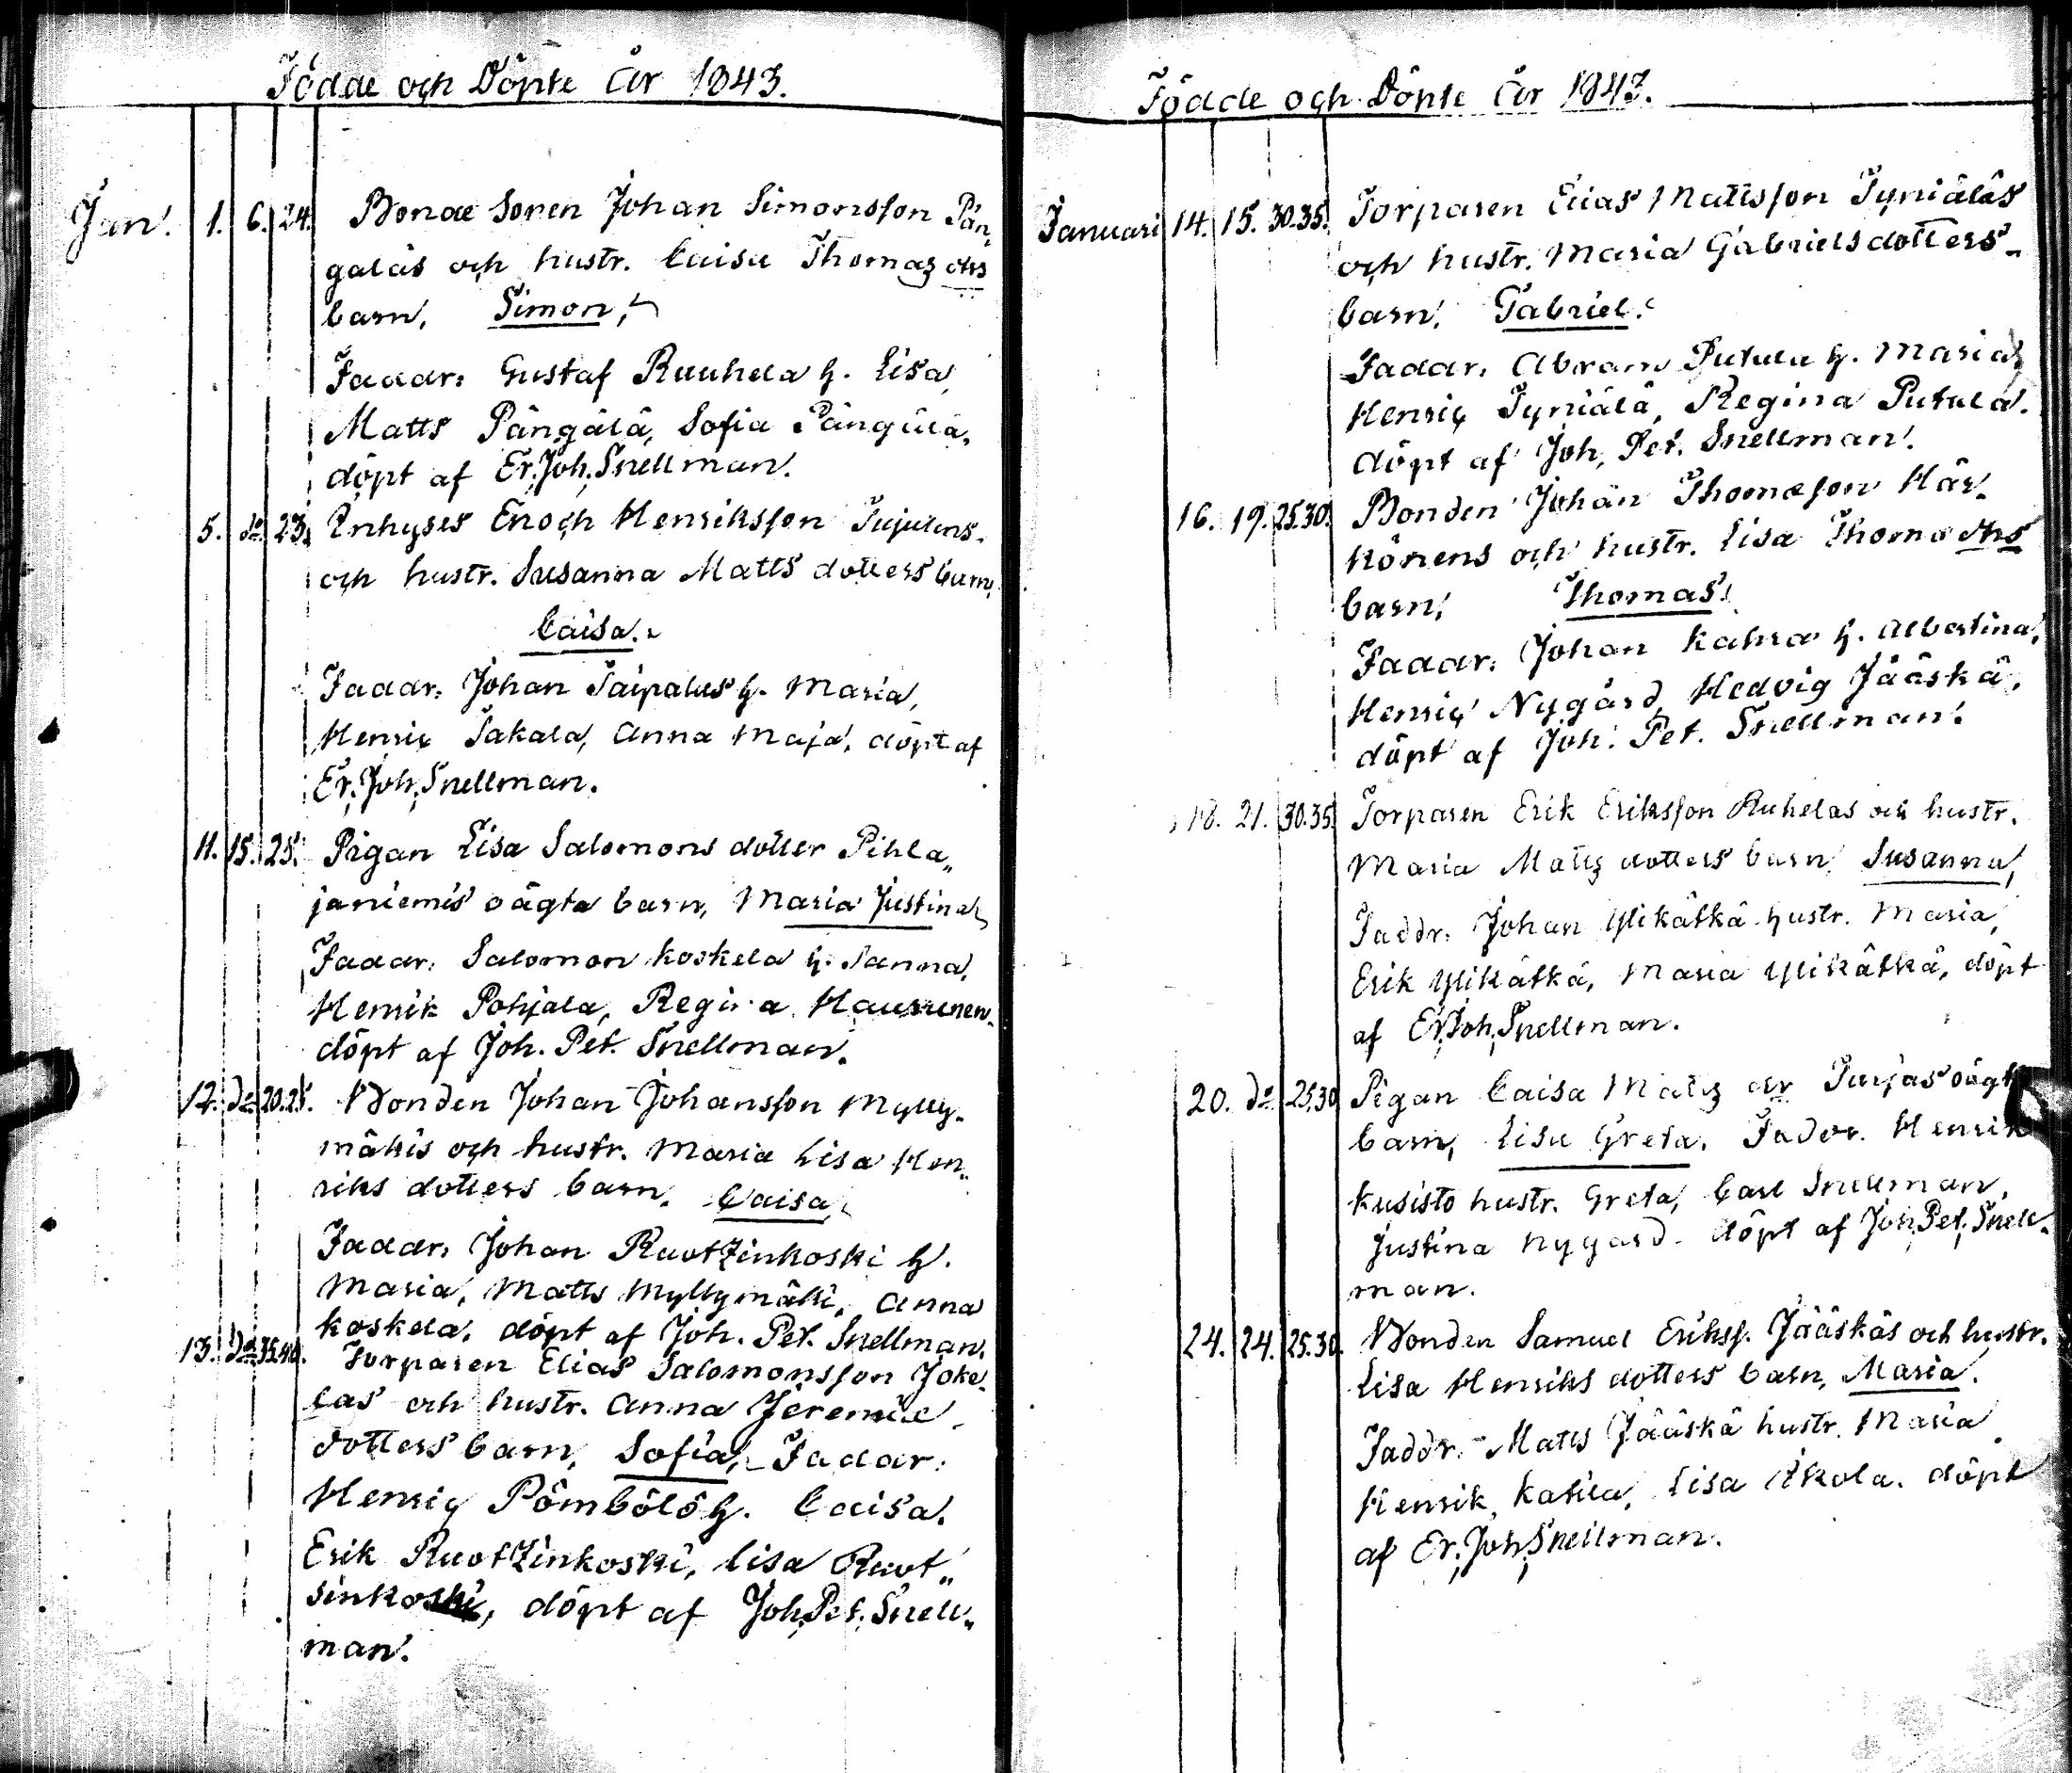 Födde och Döpte År 1843.
Jan. 1. 6. 24. Bonde Sonen Johan Simonsson Pån,,
galäs och hustr. Caisa Thomæ drs
barn, Simon,
Faddr: Gustaf Ruuhela h. Lisa,
Matts Pångälä, Sofia Pångälä,
döpt af Er. Joh. Snellman.
5. do 23. Inhyses Enoch Henriksson Jujulens
och hustr. Susanna Matts dotters barn,
Caisa.
Faddr: Johan Taipalus h. Maria,
Henric Takala, Anna Maja, döpt af
Er. Joh. Snellman.
11. 15. 25. Pigan Lisa Salomons dotter Pihla,,
janiemis oägta barn, Maria Justina
Faddr: Salomon Koskela h. Sanna,
Henrik Pohjala, Regina
döpt af Joh. Pet. Snellman.
12. do 20.25. Bonden Johan Johansson Mylly-
mäkis och hustr. Maria Lisa Hen,,
riks dotters barn, Caisa,
Faddr, Johan Ruotzinkoski h.
Maria, Matts Myllymäki, Anna
Koskela, döpt af Joh. Pet. Snellman.
13. do 35.40. Torparen Elias Salomonsson Joke,
las och hustr. Anna Jeremiæ
dotters barn, Sofia, Faddr:
Henric Pömbölö h. Caisa,
Erik Ruotzinkoski, Lisa Ruot,,
sinkoski, döpt af Joh. Pet. Snell-
man.
Födde och Döpte År 1843.
Januari 14. 15. 30.35. Torparen Elias Mattsson Tyniäläs
och hustr. Maria Gabriels dotters
barn, Gabriel.
Faddr. Abram Putula h. Maria,
Henric Tyniälä, Regina Putula.
döpt af Joh, Pet. Snellman.
16. 19. 25.30. Bonden Johan Thomæson Här,
könens och hustr. Lisa Thomæ drs
barn, Thomas.
Faddr. Johan Kahra h. Albertina,
Henric Nygård, Hedvig Jääskä,
döpt af Joh. Pet. Snellman.
18. 21. 30.35. Torparen Erik Eriksson Ruhelas och hustr.
Maria Matts dotters barn, Susanna,
Faddr. Johan Ylikätkä hustr. Maria,
Erik Ylikätkä, Maria Ylikätkä, döpt
af Er. Joh. Snellman.
20. do 25.30 Pigan Caisa Matts dr oägt
barn, Lisa Greta. Faddr. Henrik
Kusisto hustr. Greta, Carl Snellman,
Justina Nygård. döpt af Joh. Pet. Snell-
man.
24. 24. 25.30. Bonden Samuel Eriks. Jääskäs och hustr.
Lisa Henriks dotters barn, Maria.
Faddr. Matts Jääskä hustr. Maria
Henrik Katila, Lisa Ikola. döpt
af Er. Joh. Snellman.